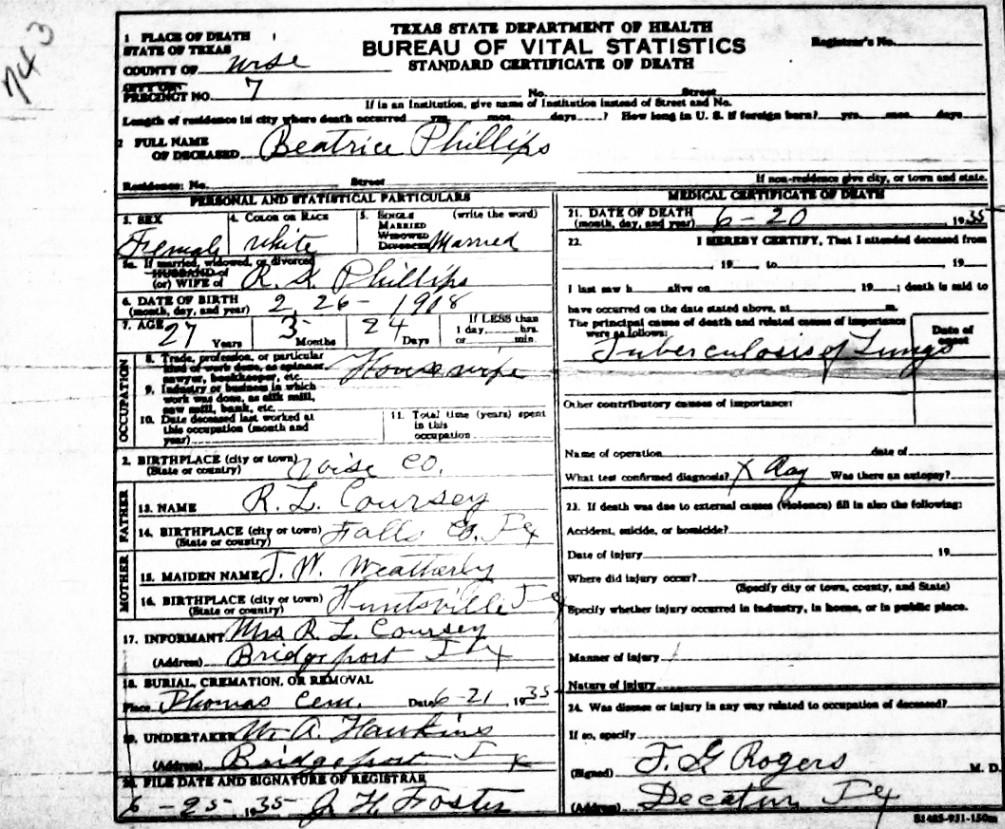 743
TEXAS STATE DEPARTMENT OF HEALTH
BUREAU OF VITAL STATISTICS
STANDARD CERTIFICATE OF DEATH
Registrar's No.
1 PLACE OF DEATH
STATE OF TEXAS
COUNTY OF Wise
CITY OR
PRECINCT NO. 7 No. Street
If in an Institution, give name of Institution instead of Street and No.
Length of residence in city where death occurred yrs. mos. days? How long in U. S. if foreign born? yrs. mos. days
2 FULL NAME
OF DECEASED Beatrice Phillips
Residence: No. Street
If non-residence give city, or town and state.
PERSONAL AND STATISTICAL PARTICULARS
3. SEX
Female
4. COLOR OR RACE
White
5. SINGLE (write the word)
MARRIED
WIDOWED
DIVORCED Married
5a. If married, widowed, or divorced
HUSBAND of
(or) WIFE of Phillips
6. DATE OF BIRTH
(month, day, and year) 2 26 - 1908
7. AGE
27 Years 3 Months 24 Days
If LESS than
1 day, hrs.
or min.
OCCUPATION
8. Trade, profession, or particular
kind of work done, as spinner,
sawyer, bookkeeper, etc. Housewife
9. Industry or business in which
work was done, as silk mill,
saw mill, bank, etc.
10. Date deceased last worked at
this occupation (month and
year)
11. Total time (years) spent
in this
occupation
2. BIRTHPLACE (city or town)
(State or country) Wise Co.
FATHER
13. NAME R. L. Coursey
14. BIRTHPLACE (city or town)
(State or country) Falls Co. Tex
MOTHER
15. MAIDEN NAME J. W. Weatherby
16. BIRTHPLACE (city or town)
(State or country) Huntsville Tex
17. INFORMANT Mrs R. L. Coursey
(Address) Bridgeport Tex
18. BURIAL, CREMATION, OR REMOVAL
Place Thomas Cem. Date 6-21, 1935
19. UNDERTAKER A. Hawkins
(Address) Bridgeport Tex
20. FILE DATE AND SIGNATURE OF REGISTRAR
6 - 25, 1935 J. H. Foster
MEDICAL CERTIFICATE OF DEATH
21. DATE OF DEATH
(month, day, and year) 6 - 20 1935
22. I HEREBY CERTIFY, That I attended deceased from
, 19 , to , 19
I last saw h alive on , 19 ; death is said to
have occurred on the date stated above, at m.
The principal cause of death and related causes of importance
were as follows:
Date of
onset
Tuberculosis of Lungs
Other contributory causes of importance:
Name of operation date of
What test confirmed diagnosis? X Ray Was there an autopsy?
23. If death was due to external causes (violence) fill in also the following:
Accident, suicide, or homicide?
Date of injury 19
Where did injury occur?
(Specify city or town, county, and State)
Specify whether injury occurred in industry, in home, or in public place.
Manner of injury
Nature of injury
24. Was disease or injury in any way related to occupation of deceased?
If so, specify
(Signed) T. G Rogers M. D.
(Address) Decatur Tex